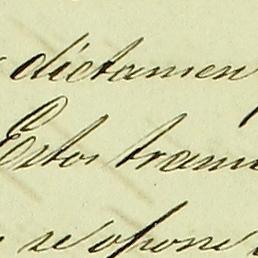 dictamen
Estos tram
se opone